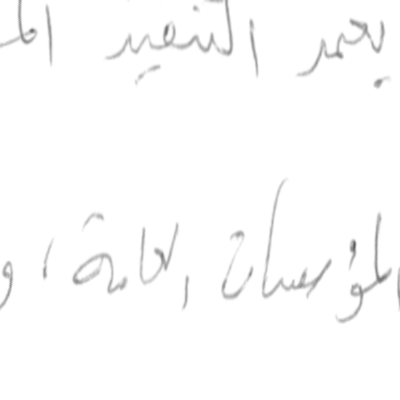 يعتمد التنفيذ الم
المؤسسات العامة، و